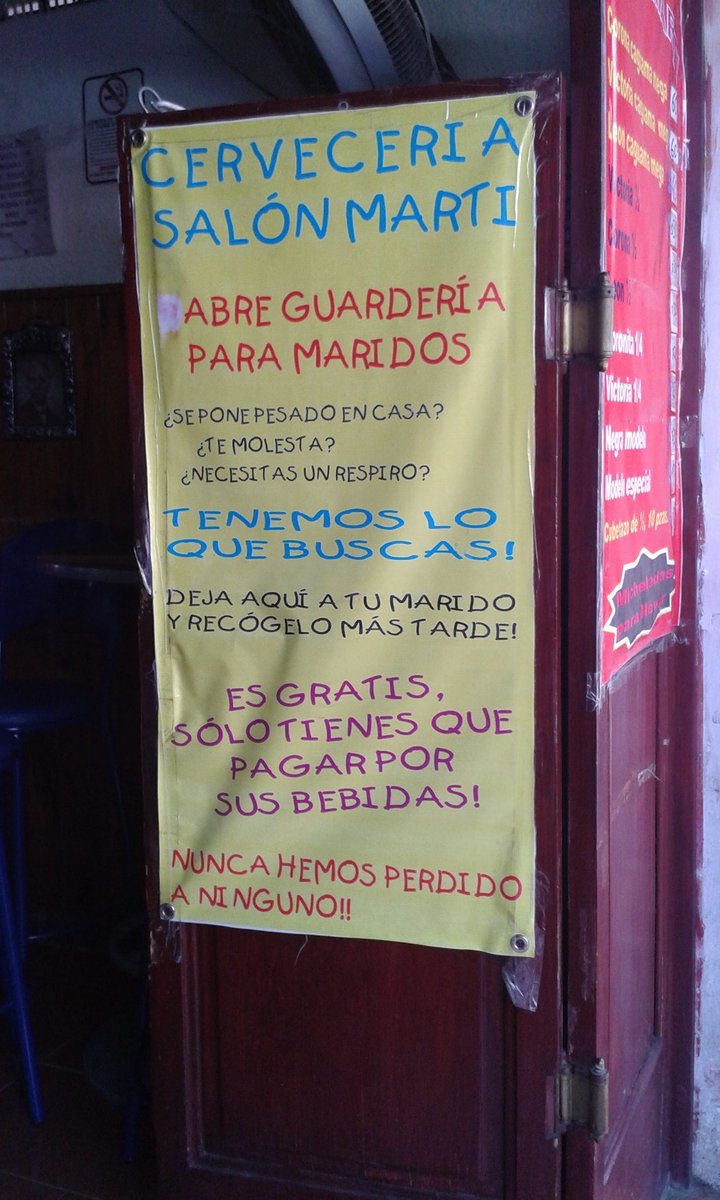 CERVECERIA
SALÓN MARTI
ABRE GUARDERÍA
PARA MARIDOS
¿SE PONE PESADO EN CASA?
¿TE MOLESTA?
¿NECESITAS UN RESPIRO?
TENEMOS LO
QUE BUSCAS!
DEJA AQUÍ A TU MARIDO
Y RECÓGELO MÁS TARDE!
ES GRATIS,
SÓLO TIENES QUE
PAGAR POR
SUS BEBIDAS!
NUNCA HEMOS PERDIDO
A NINGUNO!!
Corona caguama mega
Victoria caguama
Leon caguama mega
Victoria ½
Corona ½
½
Coronita 1/4
Victoria 1/4
Negra modelo
Modelo especial
Cubetazo de 10 pzas.
Micheladas
para llevar